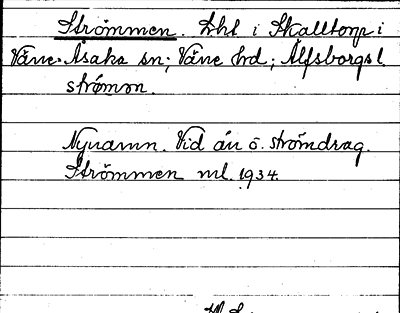 Strömmen. Lht i Skalltorp i
Väne-Åsaka sn; Väne hd; Älfsborgs l.
strömən.
Nynamn. Vid ån o. strömdrag.
Strömmen ml. 1934.